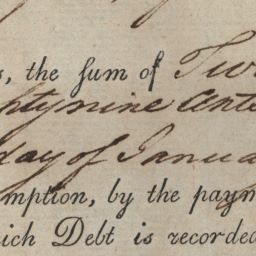 s, the sum of Tw
htynine Cents
day of Janua
mption, by the paym
hich Debt is recorded